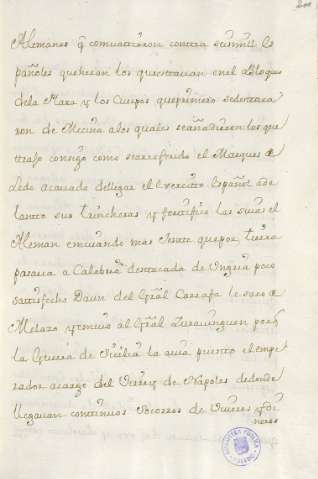 Alemanes q̃ comvatieron contra sus mil Es
pañoles que heran los que estavan en el Bloqueo
de la Plaza y los Cuerpos que primero se destaca
ron de Mecina a los quales se añadieron los que
trajo consigo como se a referido el Marques de
Lede acavado de llegar el Exercito Español ade
lantò sus trincheras y fortificò las suias el
Aleman emviando mas Jente que por tierra
pasava a Calabria destacada de Ungria poco
satisfecho Daun del Grãl Carrafa le saco de
Melazo y remvio al Grãl Zumunguen porq̃
la Guerra de Sicilia la avia puesto el Empe
rador a cargo del Virrey de Napoles de donde
llegavan continuos socorros de Viveres y Di
neros
BIBLIOTECA PUBLICA
TOLEDO